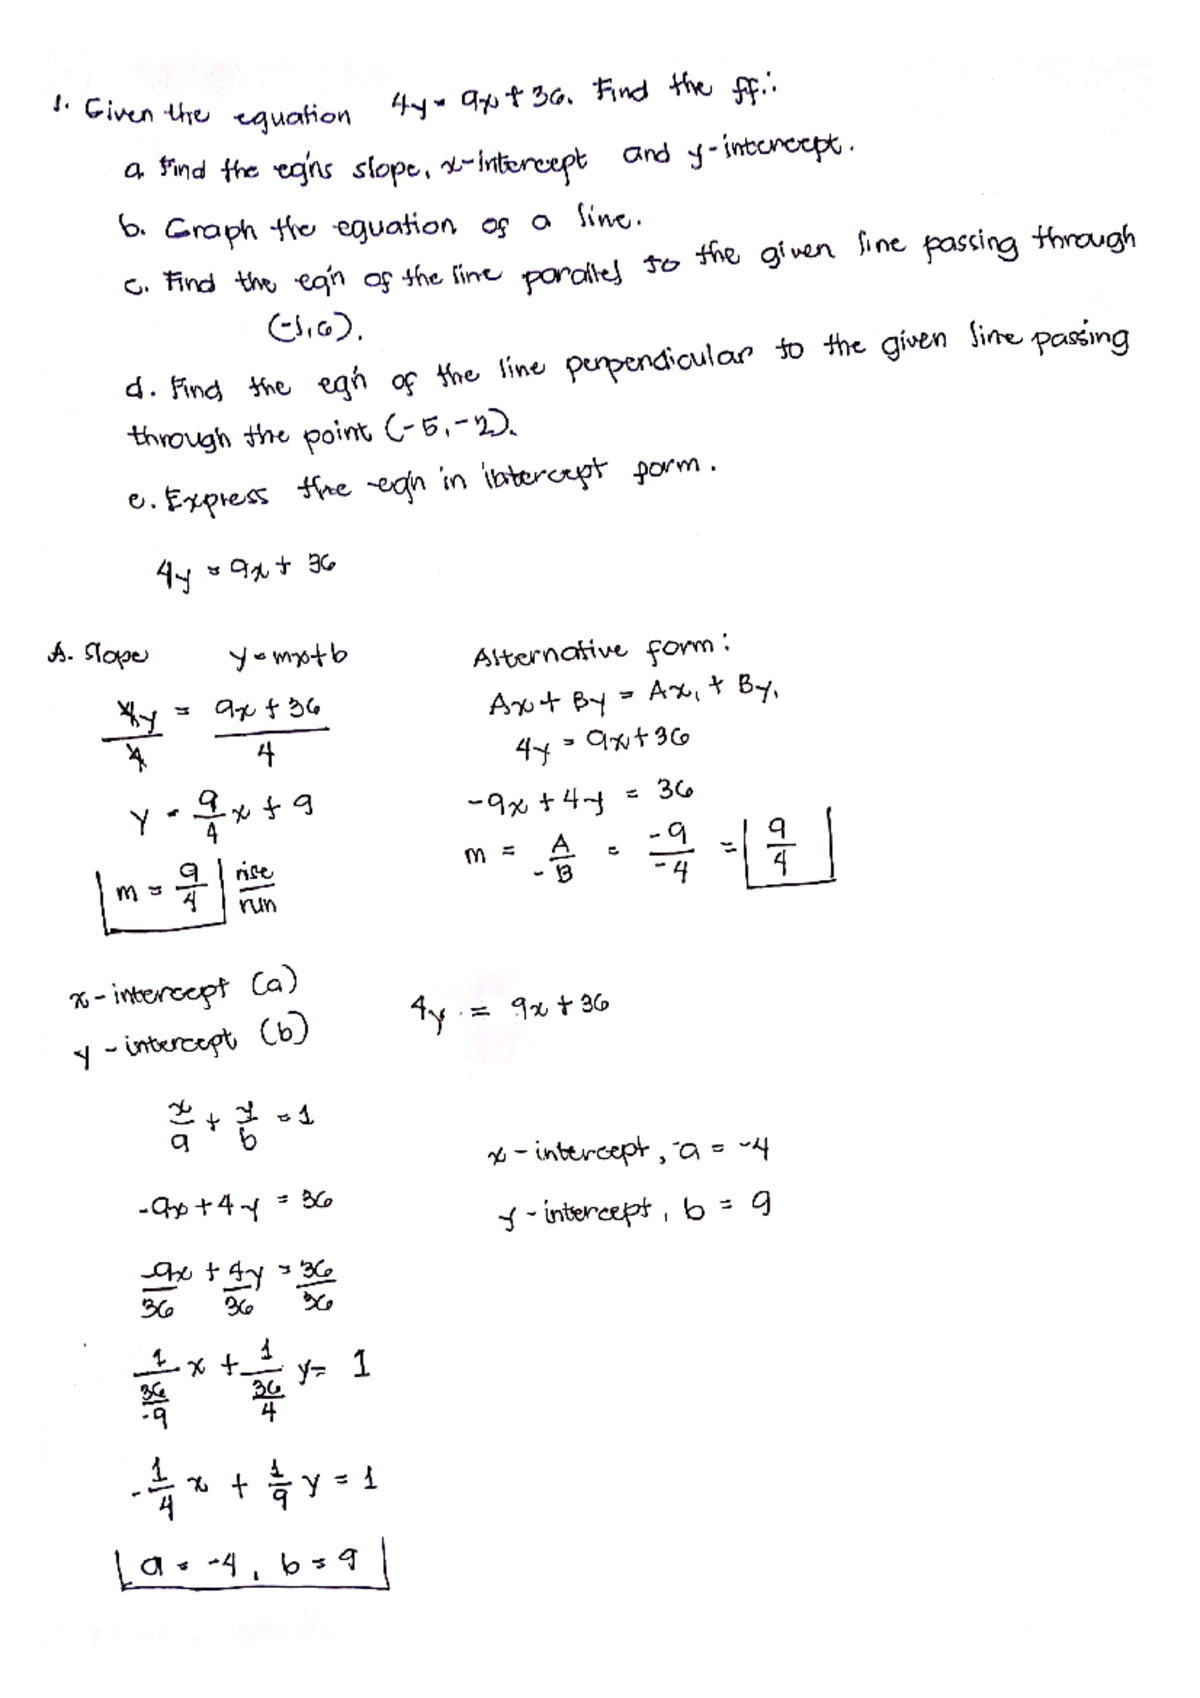 1. Given the equation 4y = 9x + 36. Find the ff.:
a. Find the eq'ns slope, x-intercept and y-intercept.
b. Graph the equation of a line.
c. Find the eq'n of the line parallel to the given line passing through
(-1,6).
d. Find the eq'n of the line perpendicular to the given line passing
through the point (-5,-2).
e. Express the eq'n in intercept form.
4y = 9x + 36
A. Slope y = mx+b
4y/4 = 9x + 36/4
y = 9/4 x + 9
m = 9/4 rise/run
Alternative form:
Ax + By = Ax₁ + By₁
4y = 9x + 36
-9x + 4y = 36
m = A/-B = -9/-4 = 9/4
x-intercept (a)
y-intercept (b)
4y = 9x + 36
x/a + y/b = 1
-9x + 4y = 36
-9x/36 + 4y/36 = 36/36
1/(36/-9) x + 1/(36/4) y = 1
-1/4 x + 1/9 y = 1
a = -4, b = 9
x-intercept, a = -4
y-intercept, b = 9